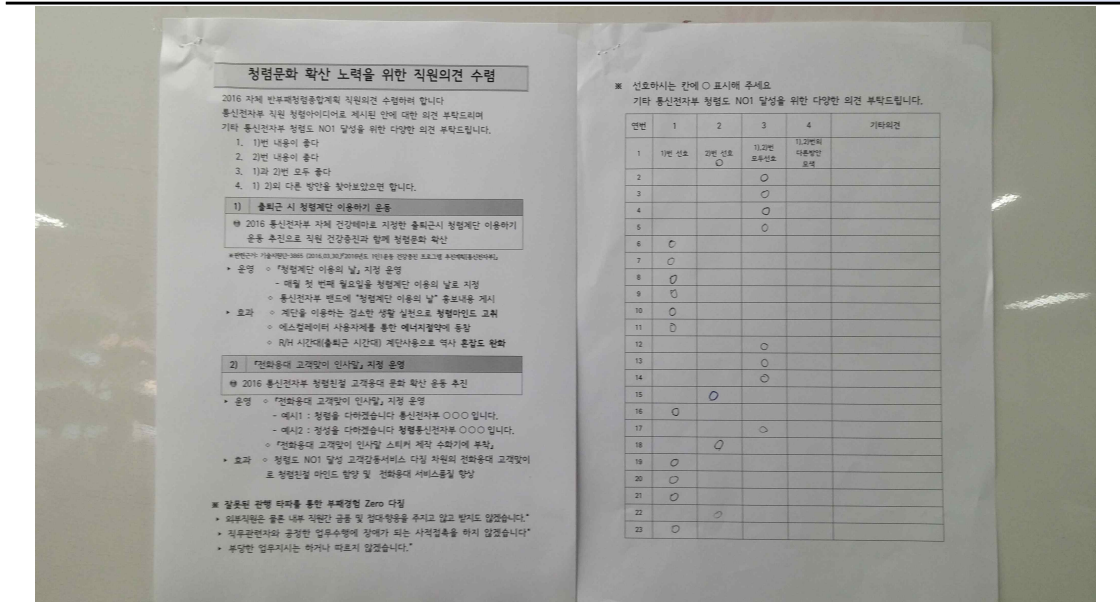 청렴문화 확산 노력을 위한 직원의견 수렴
2016 자체 반부패청렴종합계획 직원의견 수렴하려 합니다
통신전자부 직원 청렴아이디어로 제시된 안에 대한 의견 부탁드리며
기타 통신전자부 청렴도 NO1 달성을 위한 다양한 의견 부탁드립니다.
1. 1)번 내용이 좋다
2. 2)번 내용이 좋다
3. 1)과 2)번 모두 좋다
4. 1) 2)의 다른 방안을 찾아보았으면 합니다.
1) 출퇴근 시 청렴계단 이용하기 운동
2016 통신전자부 자체 건강테마로 지정한 출퇴근시 청렴계단 이용하기
운동 추진으로 직원 건강증진과 함께 청렴문화 확산
▸ 운영 ○ 「청렴계단 이용의 날」 지정 운영
- 매월 첫 번째 월요일을 청렴계단 이용의 날로 지정
○ 통신전자부 밴드에 "청렴계단 이용의 날" 홍보내용 게시
▸ 효과 ○ 계단을 이용하는 검소한 생활 실천으로 청렴마인드 고취
○ 에스컬레이터 사용자제를 통한 에너지절약에 동참
○ R/H 시간대(출퇴근 시간대) 계단사용으로 역사 혼잡도 완화
2) 「전화응대 고객맞이 인사말」 지정 운영
2016 통신전자부 청렴친절 고객응대 문화 확산 운동 추진
▸ 운영 ○ 「전화응대 고객맞이 인사말」 지정 운영
- 예시1 : 청렴을 다하겠습니다 통신전자부 ○○○ 입니다.
- 예시2 : 정성을 다하겠습니다 청렴통신전자부 ○○○ 입니다.
○ 「전화응대 고객맞이 인사말 스티커 제작 수화기에 부착」
▸ 효과 ○ 청렴도 NO1 달성 고객감동서비스 다짐 차원의 전화응대 고객맞이
로 청렴친절 마인드 함양 및 전화응대 서비스품질 향상
※ 잘못된 관행 타파를 통한 부패경험 Zero 다짐
▸ 외부직원은 물론 내부 직원간 금품 및 접대·향응을 주지고 않고 받지도 않겠습니다."
▸ 직무관련자와 공정한 업무수행에 장애가 되는 사적접촉을 하지 않겠습니다"
▸ 부당한 업무지시는 하거나 따르지 않겠습니다."
※ 선호하시는 칸에 ○ 표시해 주세요
기타 통신전자부 청렴도 NO1 달성을 위한 다양한 의견 부탁드립니다.
연번 1 2 3 4 기타의견
1 1)번 선호 2)번 선호 ○ 1),2)번 모두선호 1),2)번의 다른방안 모색
2 ○
3 ○
4 ○
5 ○
6 ○
7 ○
8 ○
9 ○
10 ○
11 ○
12 ○
13 ○
14 ○
15 ○
16 ○
17 ○
18 ○
19 ○
20 ○
21 ○
22 ○
23 ○